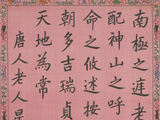 南極之老
配神山之呼
命之攸述按
朝多吉瑞貞
天地為常
唐人老人星